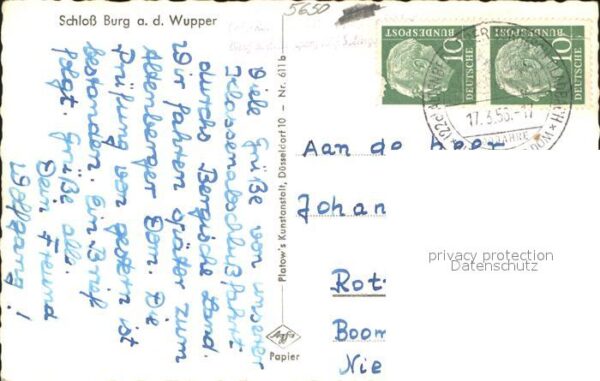 Schloß Burg a. d. Wupper
5650
Viele Grüße von unserer
Klassenabschlußfahrt
durchs Bergische Land.
Wir fahren später zum
Altenberger Dom. Die
Prüfung von gestern ist
bestanden. Ein Brief
folgt. Grüße alle.
Dein Freund
Wolfgang!
Platow's Kunstanstalt, Düsseldorf 10 - Nr. 611 b
Agfa
Papier
10
DEUTSCHE
BUNDESPOST
10
DEUTSCHE
BUNDESPOST
17.3.56.-17
Aan de heer
Johan
Rot
Boom
Nie
privacy protection
Datenschutz